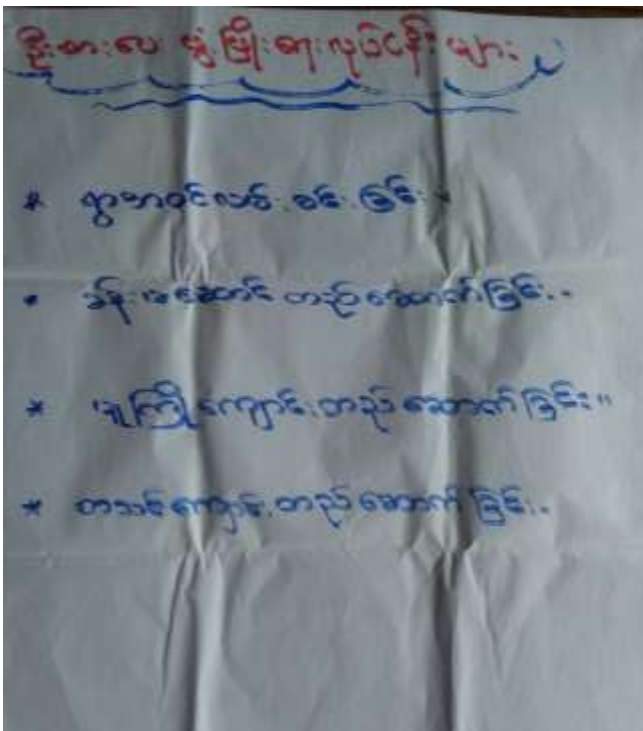 ဦးစားပေး ဖွံ့ဖြိုးရေးလုပ်ငန်းများ
* ရွာအဝင်လမ်းခင်းခြင်း။
* ခန်းမဆောင် တည်ဆောက်ခြင်း။
* မူကြိုကျောင်းတည်ဆောက်ခြင်း။
* စာသင်ကျောင်းတည်ဆောက်ခြင်း။